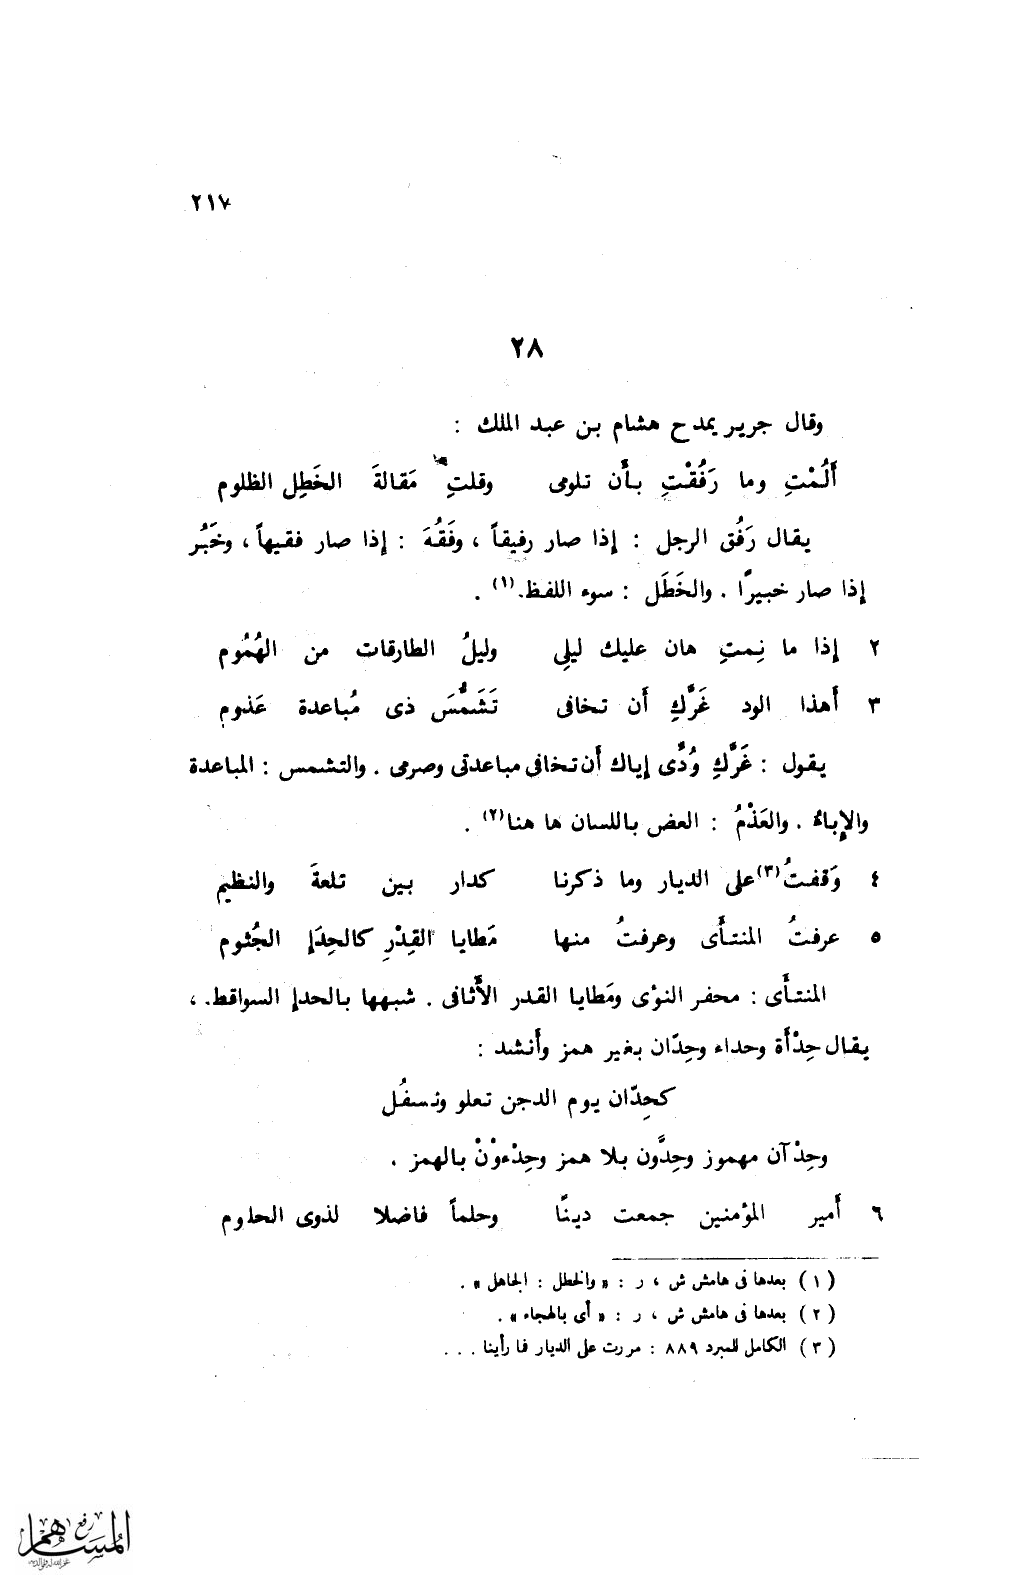 ٢١٧
٢٨
وقال جرير يمدح هشام بن عبد الملك :
أَلُمْتِ وما رَفُقْتِ بأَن تلومى وقلتِ مَقالةَ الخَطِل الظلوم
يقال رَفُق الرجل : إذا صار رفيقاً ، وفَقُهَ : إذا صار فقيهاً ، وخَبُر
إذا صار خبيرًا . والخَطَل : سوء اللفظ.(١) .
٢ إذا ما نِمتِ هان عليك ليلِى وليلُ الطارقات من الهُمُوم
٣ أَهذا الود غَرَّكِ أَن تخافى تَشَمُّسَ ذى مُباعدة عَذوم
يقول : غَرَّكِ وُدَّى إياك أَن تخافى مباعدتى وصرمى . والتشمس : المباعدة
والإباءُ . والعَذْمُ : العض باللسان ها هنا(٢) .
٤ وَقفتُ(٣) على الديار وما ذكرنا كدار بين تلعةَ والنظيم
٥ عرفتُ المنتأَى وعرفتُ منها مَطايا القِدْرِ كالحِدَإِ الجُثوم
المنتأَى : محفر النوْى ومَطايا القدر الأَثافى . شبهها بالحدإ السواقط. ،
يقال حِدْأَة وحداء وحِدّان بغير همز وأَنشد :
كحِدّان يوم الدجن تعلو وتسفُل
وحِدْآن مهموز وحِدَّون بلا همز وحِدْءوْنْ بالهمز .
٦ أَمير المؤمنين جمعت دينًا وحلماً فاضلا لذوى الحلوم
(١) بعدها فى هامش ش ، ر : « والخطل : الجاهل » .
(٢) بعدها فى هامش ش ، ر : « أى بالهجاء » .
(٣) الكامل للمبرد ٨٨٩ : مررت على الديار فما رأينا . . .
رفع
المساهم